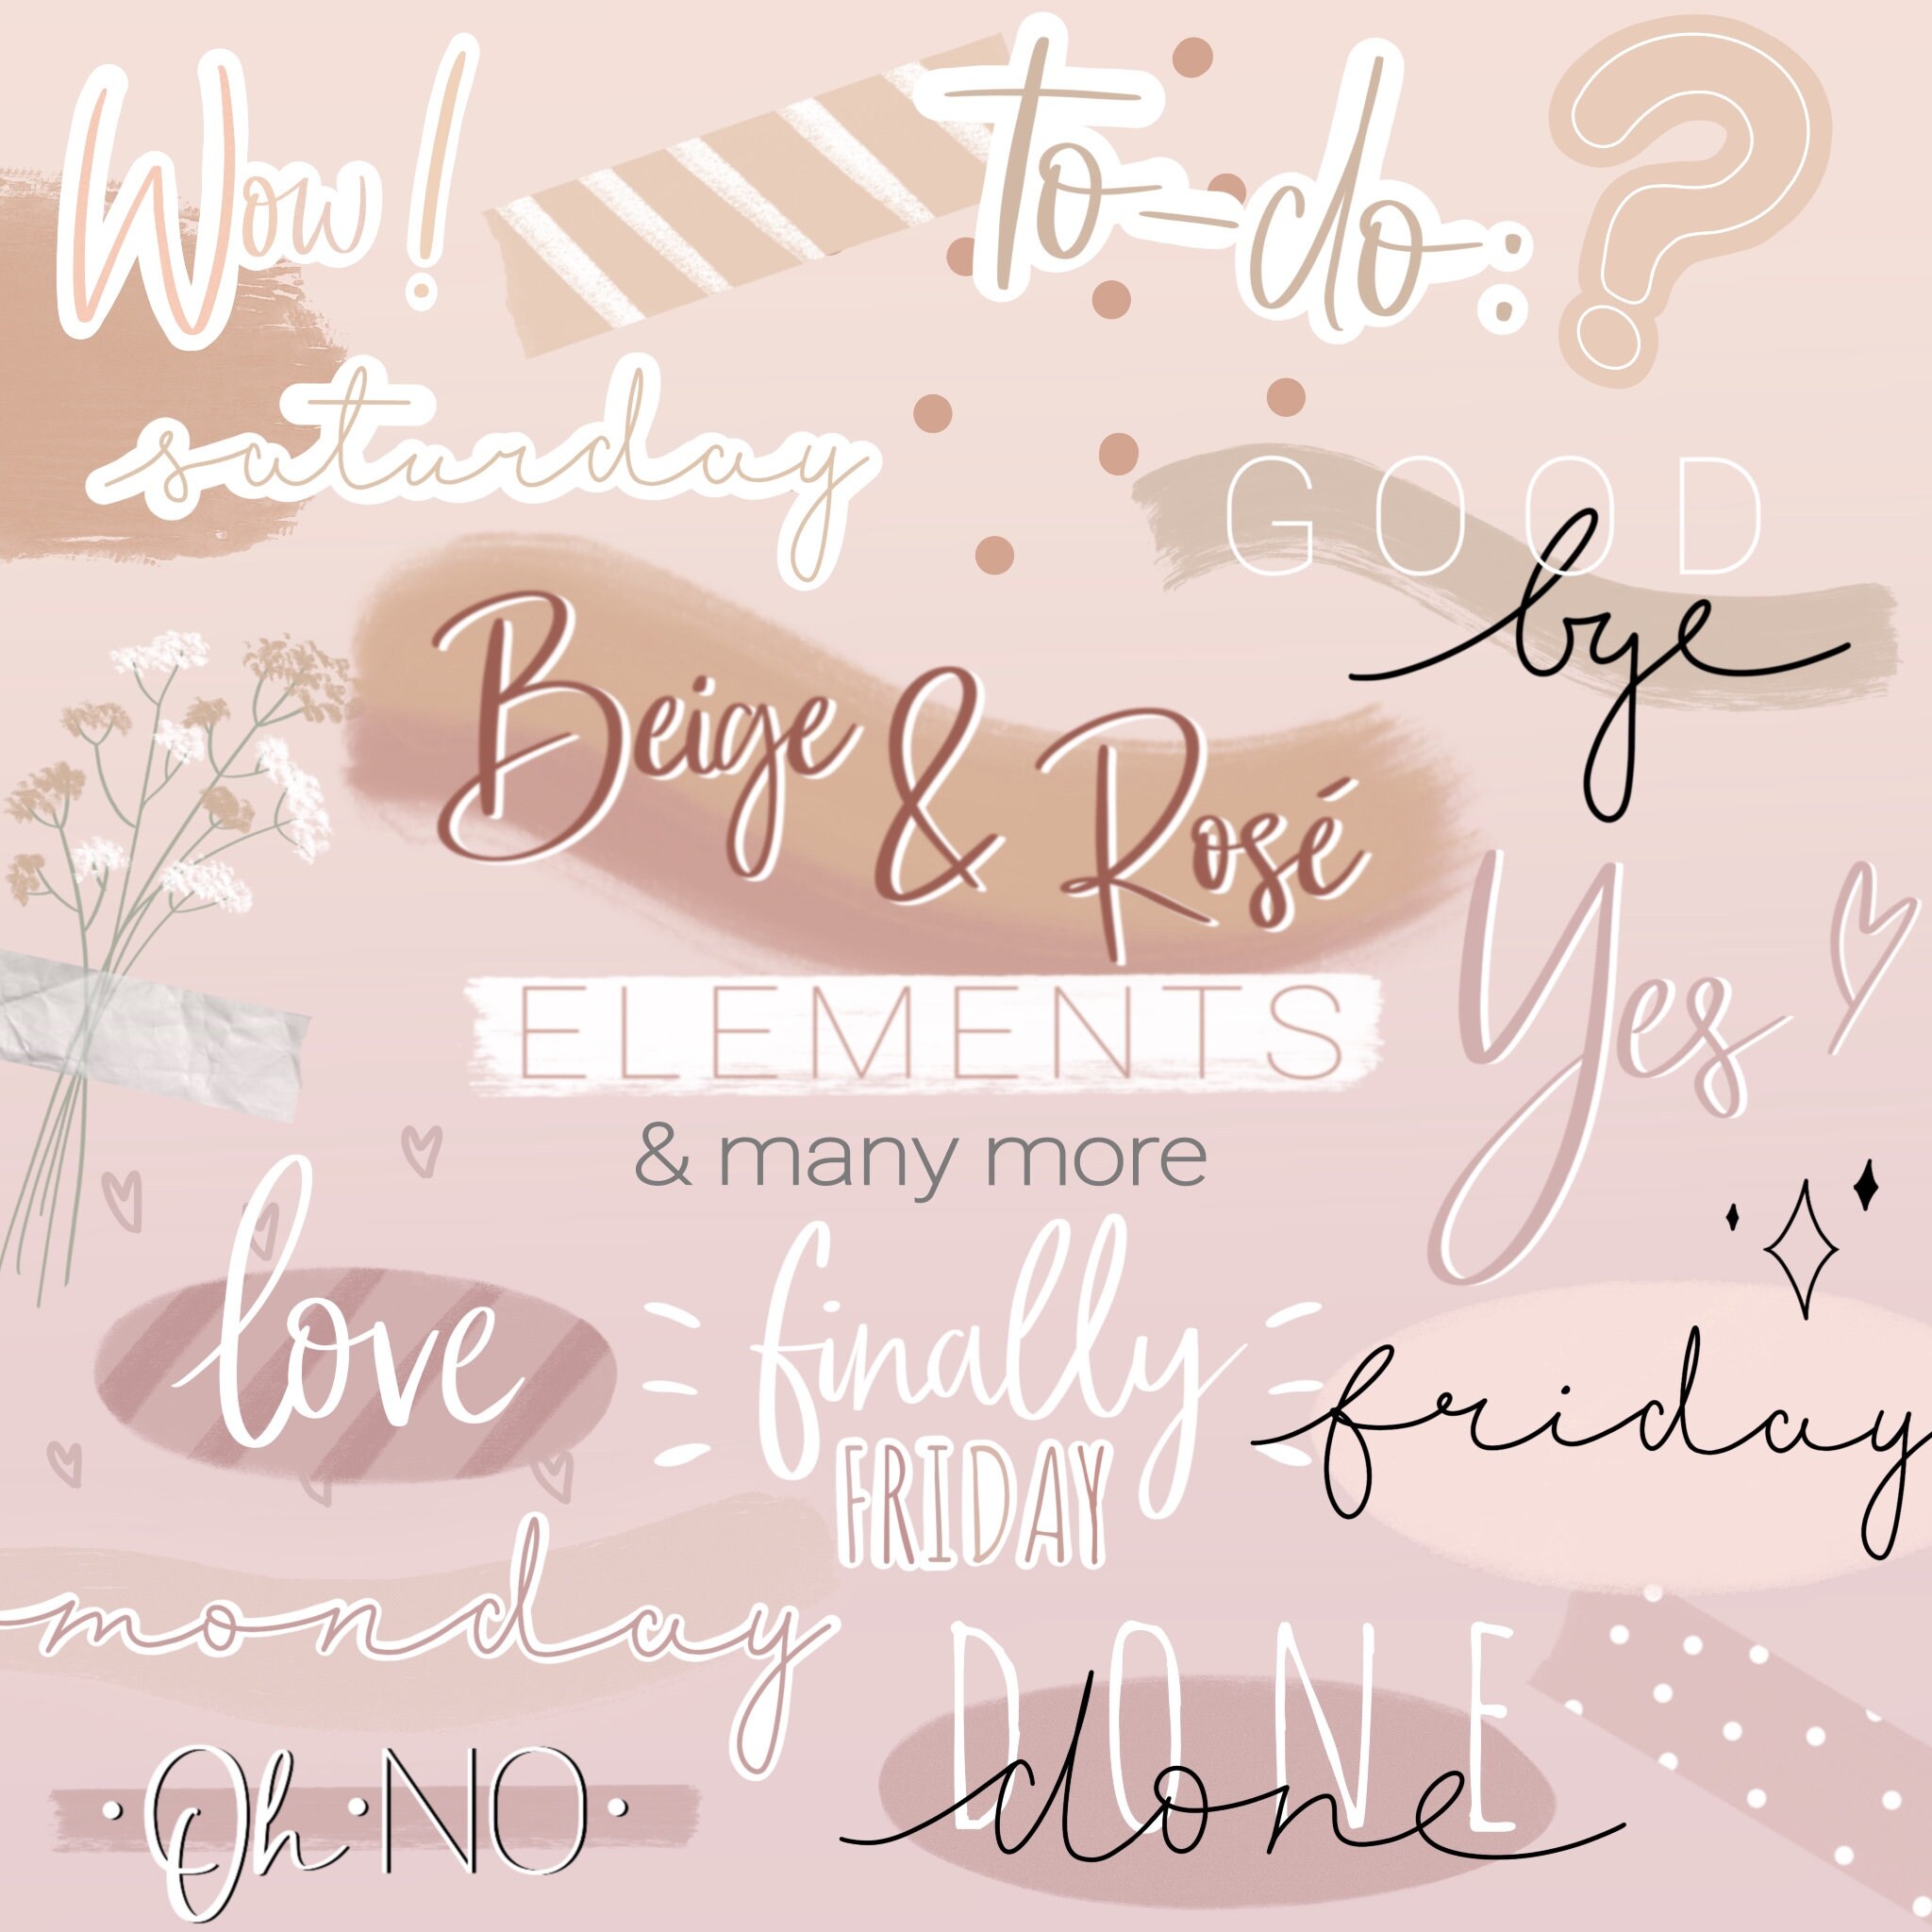 Wow!
to-do:
?
saturday
GOOD
bye
Beige & Rosé
ELEMENTS
& many more
Yes
love
finally
FRIDAY
friday
monday
DONE
done
Oh NO